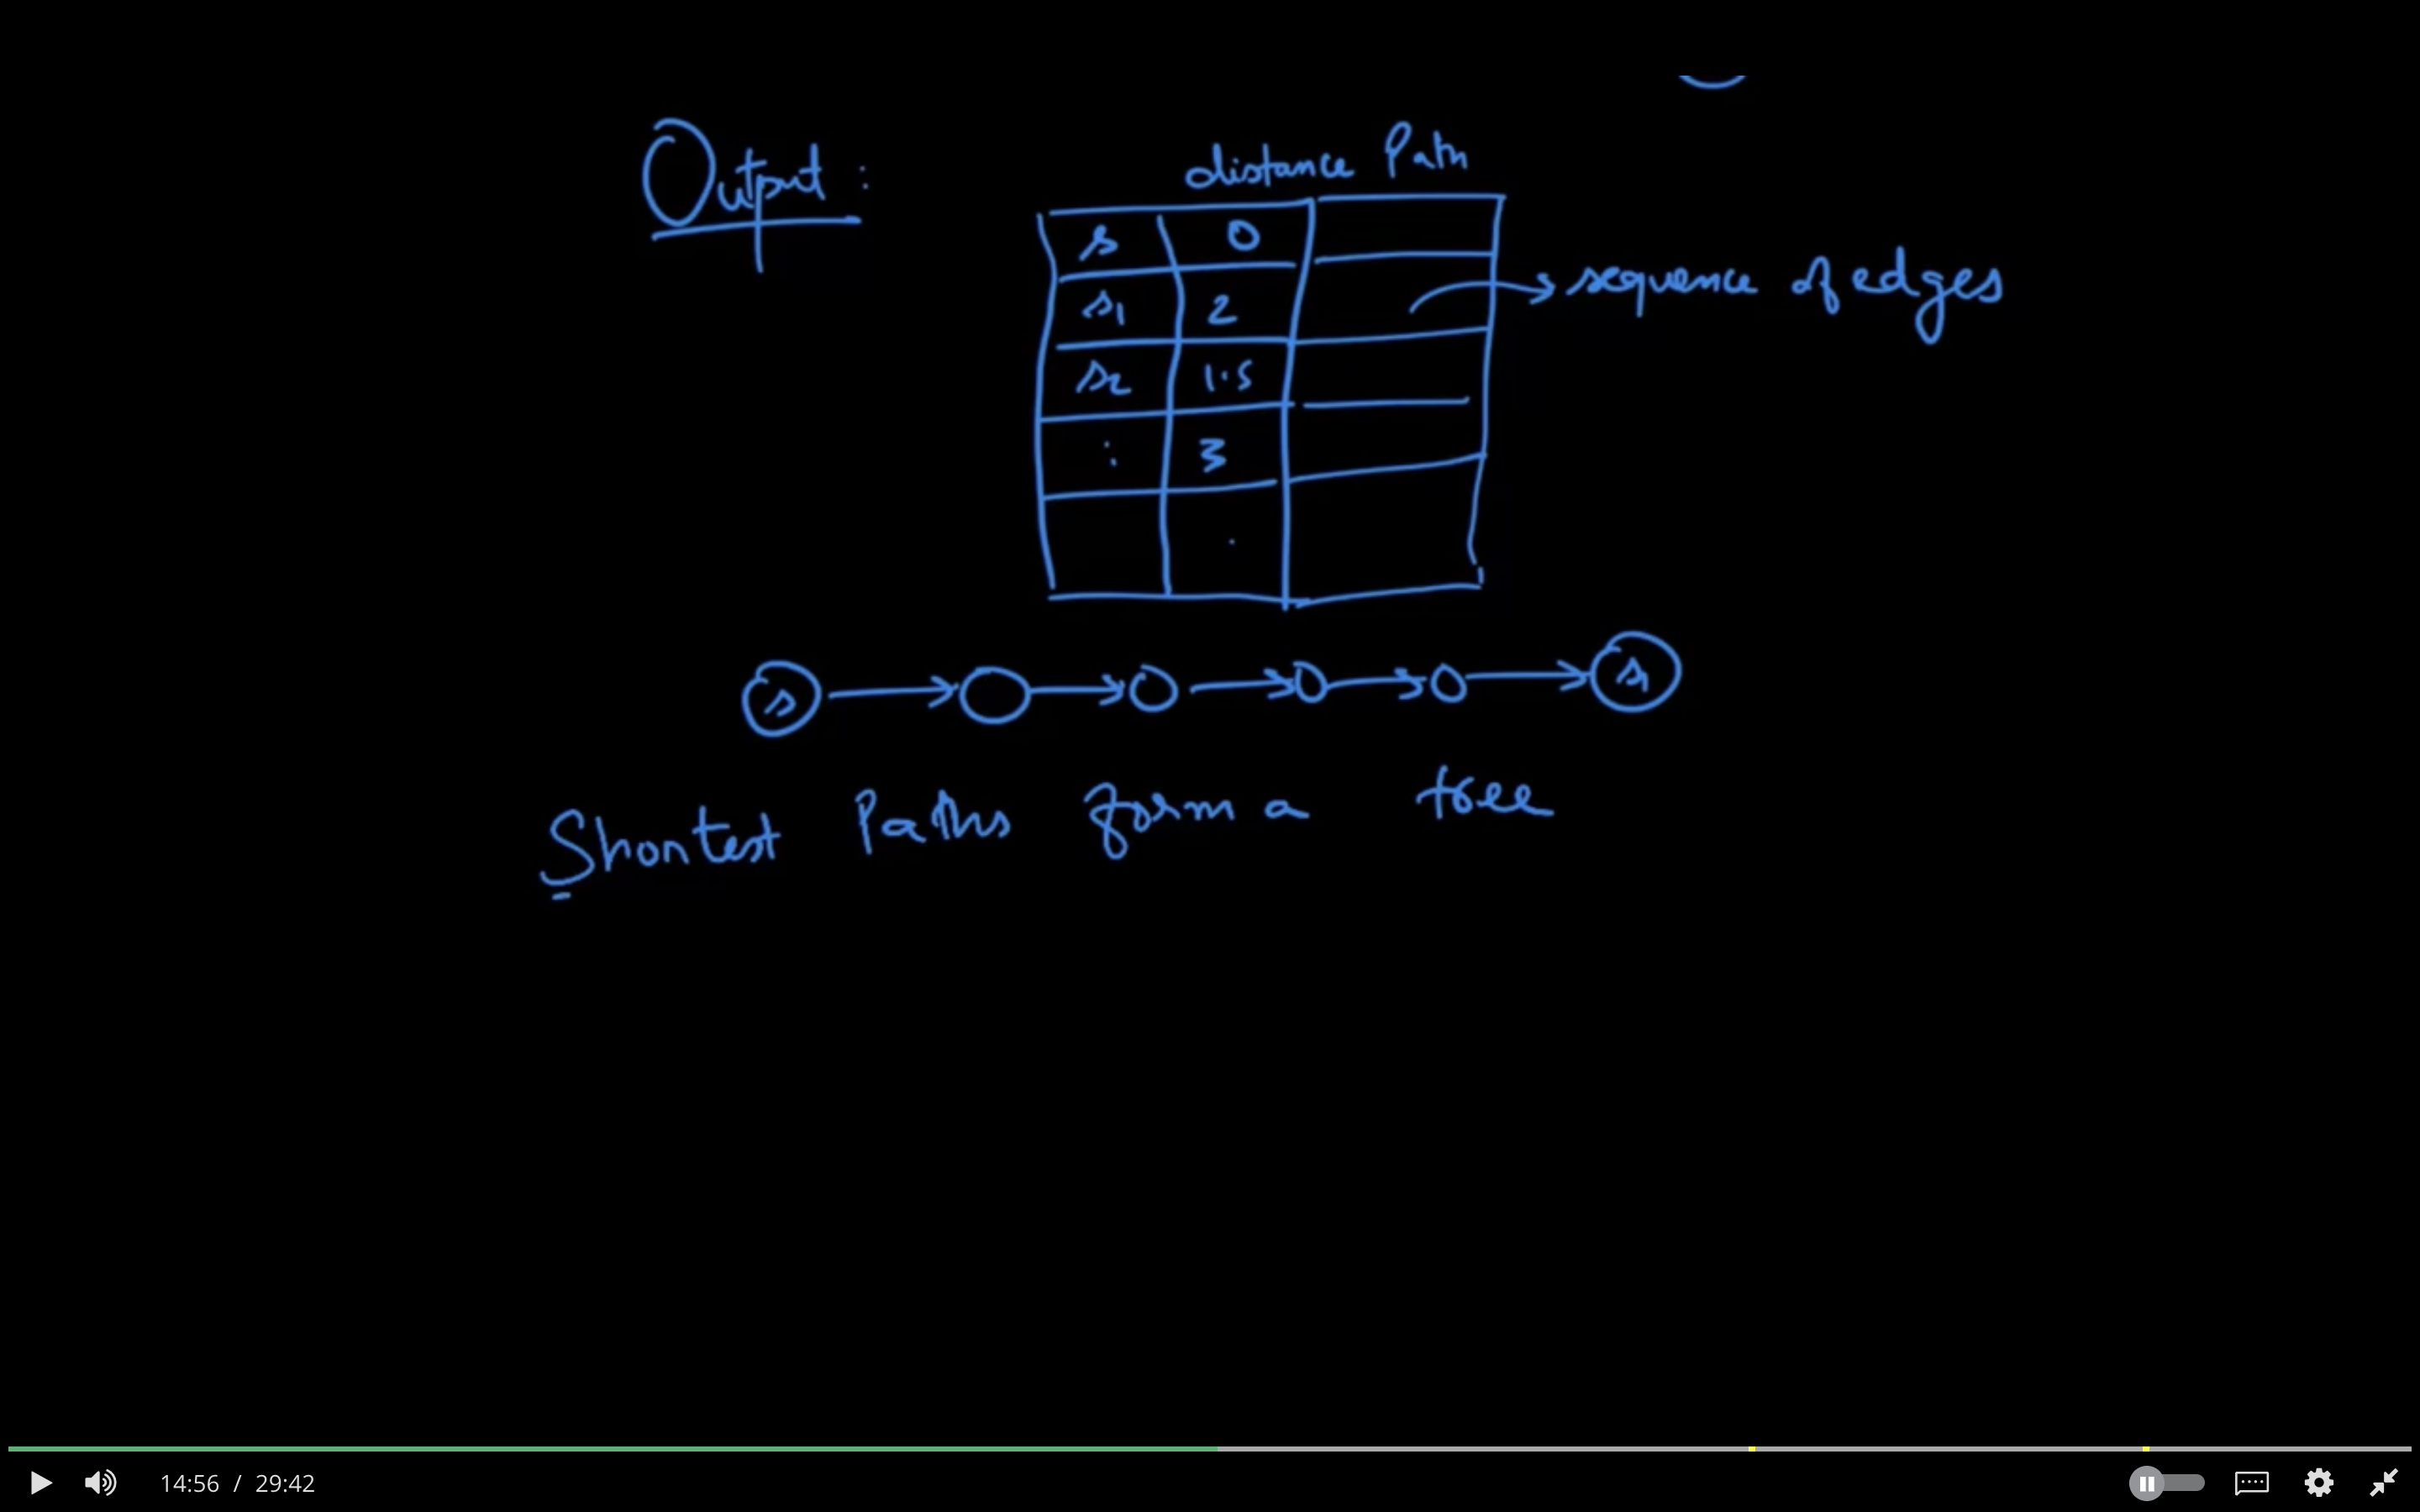 Output :
distance Path
s 0
s1 2
s2 1.5
: 3
.
sequence of edges
s s1
Shortest Paths form a tree
14:56 / 29:42